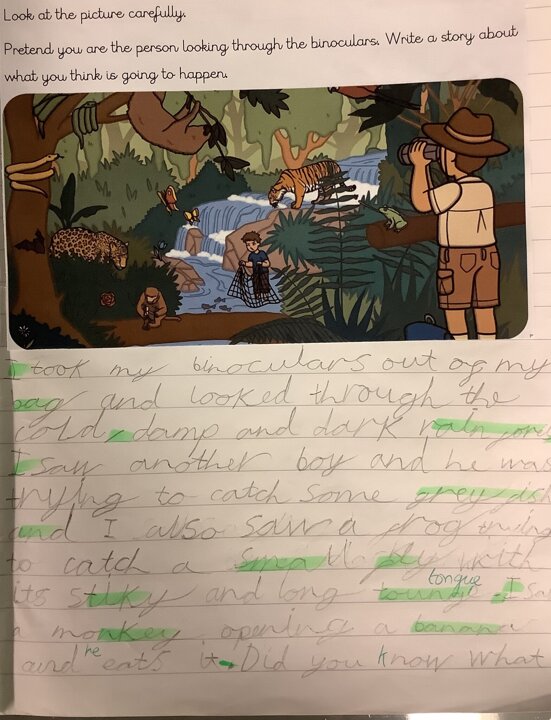 Look at the picture carefully.
Pretend you are the person looking through the binoculars. Write a story about
what you think is going to happen.
I took my binoculars out og my
bag and looked through the
cold, damp and dark
I saw another boy and he was
trying to catch some grey
and I also saw a frog
to catch a small fly with
its stiky and long tounge. I
tongue
a monkey opening a banana
and he eats it. Did you know what